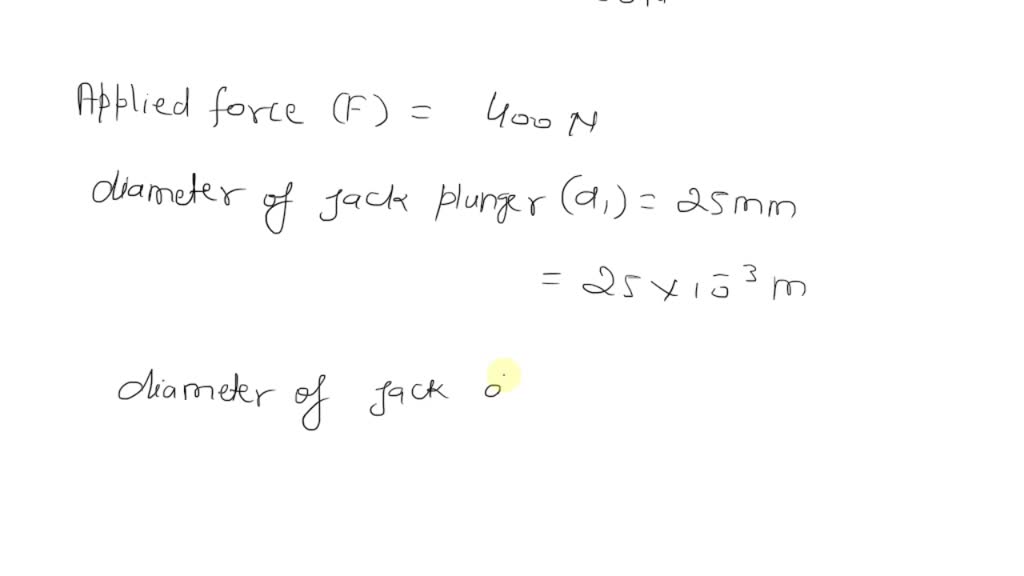 Applied force (F) = 400 N
diameter of jack plunger (d₁) = 25 mm
= 25 × 10⁻³ m
diameter of jack